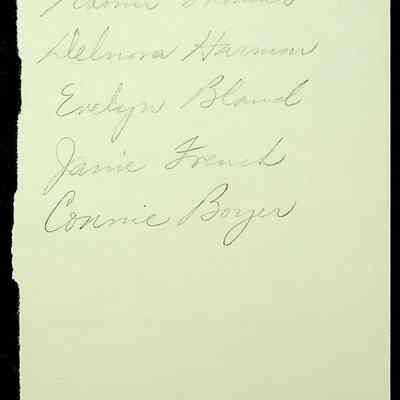 Delnora Harmon
Evelyn Bland
Janie French
Connie Boyer